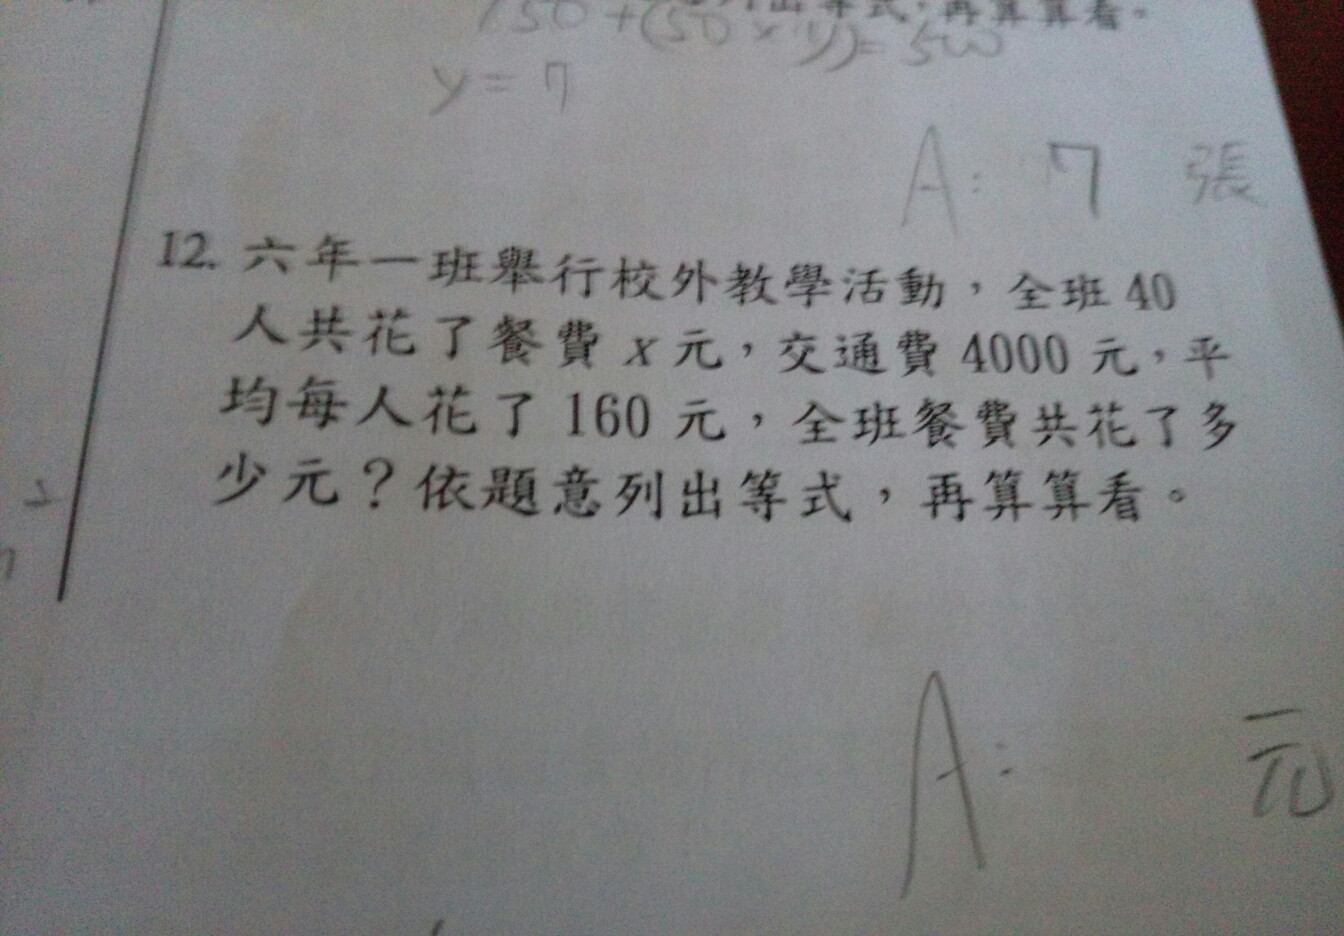 列出等式，再算算看。
150+(50×y)=500
y=7
A: 7 張
12. 六年一班舉行校外教學活動，全班 40
人共花了餐費 x 元，交通費 4000 元，平
均每人花了 160 元，全班餐費共花了多
少元？依題意列出等式，再算算看。
A: 元